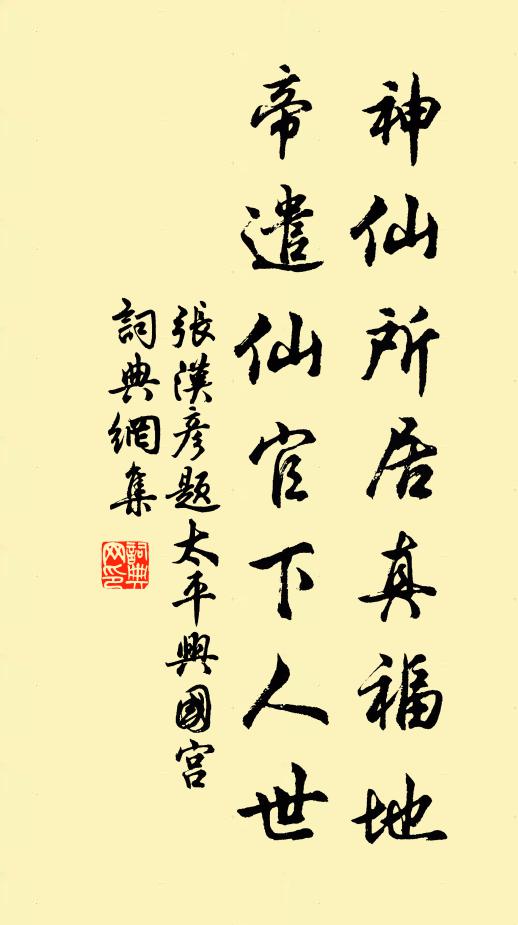 神仙所居真福地
帝遣仙官下人世
張漢彥題太平興國宮
詞典網集
詞典网印